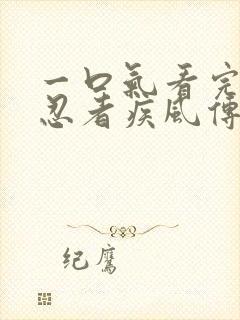 一口氣看完
忍者疾風傳
纪鹰